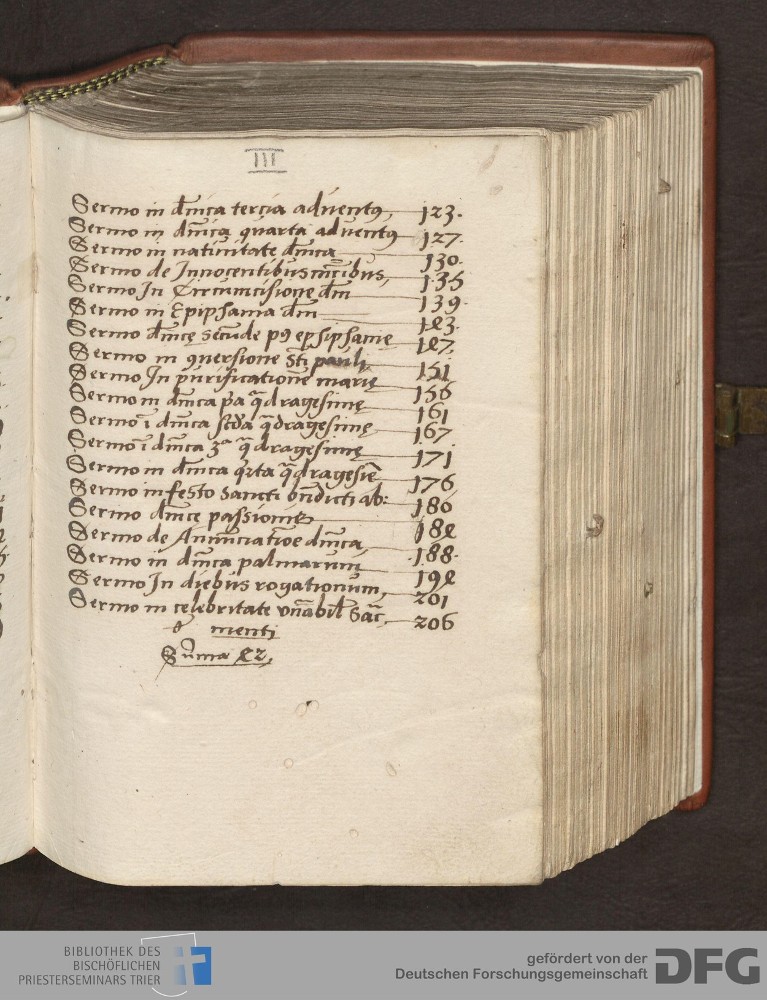 III
Sermo in dm̄ica tercia adventꝰ, 123.
Sermo in dm̄ica quarta adventꝰ 127.
Sermo in nativitate dm̄ica 130.
Sermo de Innocentibus m̄ribus, 135
Sermo In Circumcisione dm̄ 139
Sermo in Epiphania dm̄ 143.
Sermo dm̄icę secūde pꝰ epiphanię 147.
Sermo in ꝯversione Sc̄ti pauli 151
Sermo In purificatione marię 156
Sermo in dm̄ica p̄a q̄dragesimę 161
Sermo ī dm̄ica scd̄a q̄dragesimę 167
Sermo ī dm̄ica 3ᵃ q̄dragesimę 171
Sermo in dm̄ica q̄rta q̄dragesīe 176
Sermo in festo Sancti bn̄dicti ab: 180
Sermo dm̄icę passionis 184
Sermo de Annunciatiōe dm̄ica, 188.
Sermo in dm̄ica palmarum 194
Sermo In diebus rogationum, 201
Sermo in celebritate vn̄abil' Sac̄ 206
menti
Sūma 42,
BIBLIOTHEK DES
BISCHÖFLICHEN
PRIESTERSEMINARS TRIER
gefördert von der
Deutschen Forschungsgemeinschaft
DFG